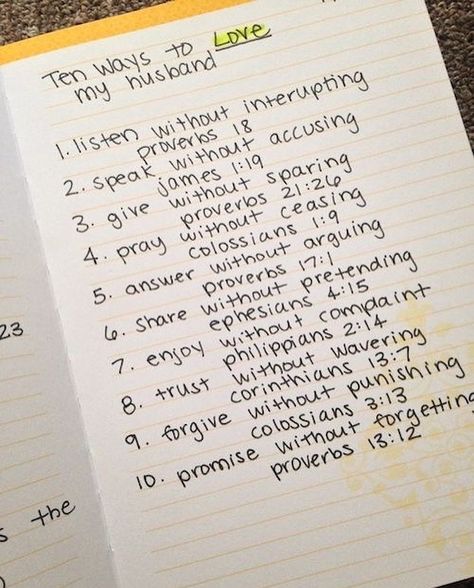 Ten Ways to Love
my husband
1. listen without interupting
proverbs 18
2. speak without accusing
james 1:19
3. give without sparing
proverbs 21:26
4. pray without ceasing
colossians 1:9
5. answer without arguing
proverbs 17:1
6. share without pretending
ephesians 4:15
7. enjoy without complaint
philippians 2:14
8. trust without wavering
corinthians 13:7
9. forgive without punishing
colossians 3:13
10. promise without forgetting
proverbs 13:12
23
s the